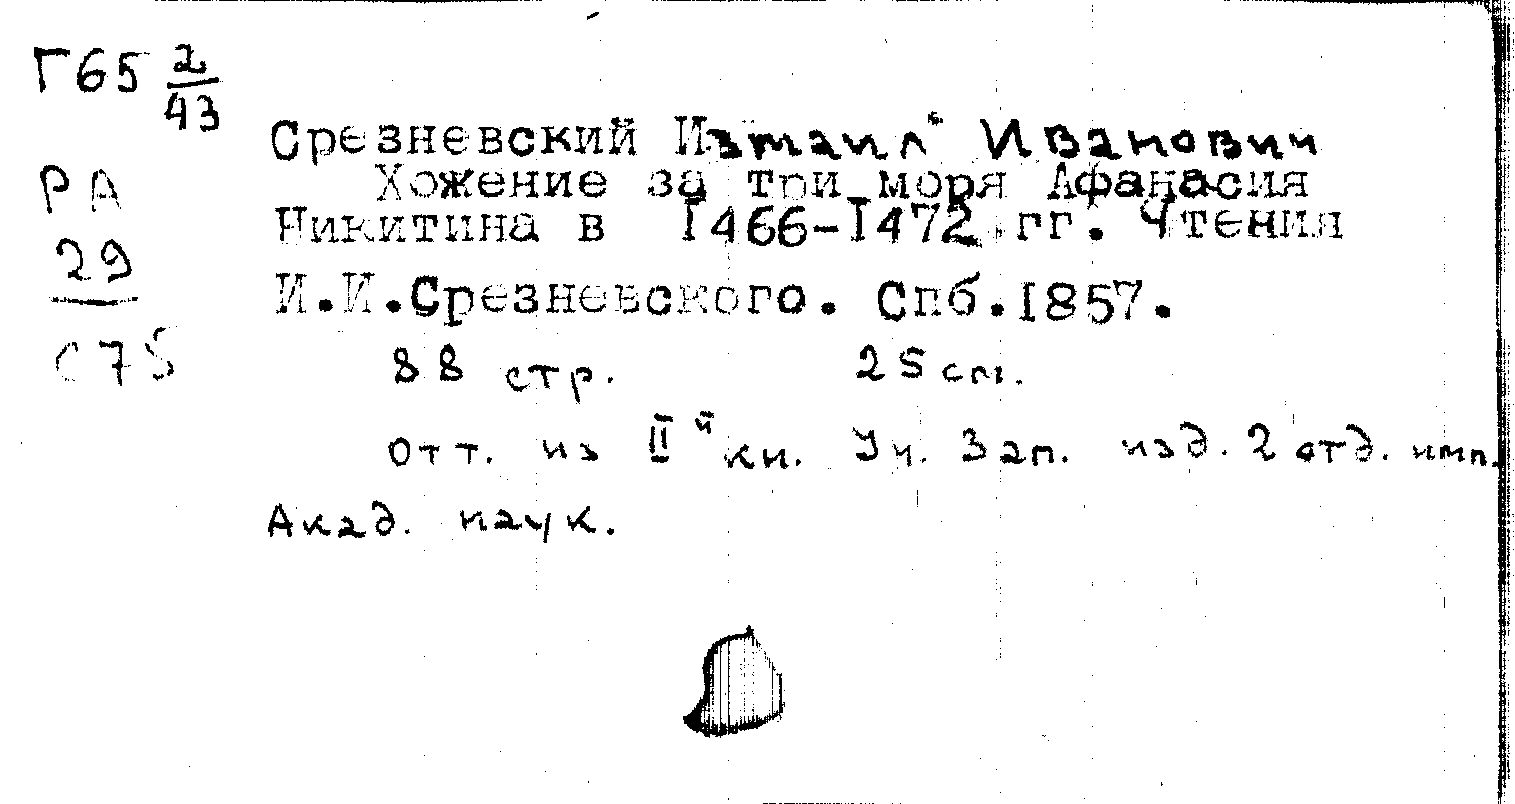 Г65 2/43
Срезневский Измаил Иванович
РА
Хожение за три моря Афанасия
Никитина в I466-I472 гг. Чтения
29
И.И.Срезневского. Спб.I857.
С75
88 стр. 25 см.
Отт. из II й кн. Уч. Зап. изд. 2 отд. имп.
Акад. наук.